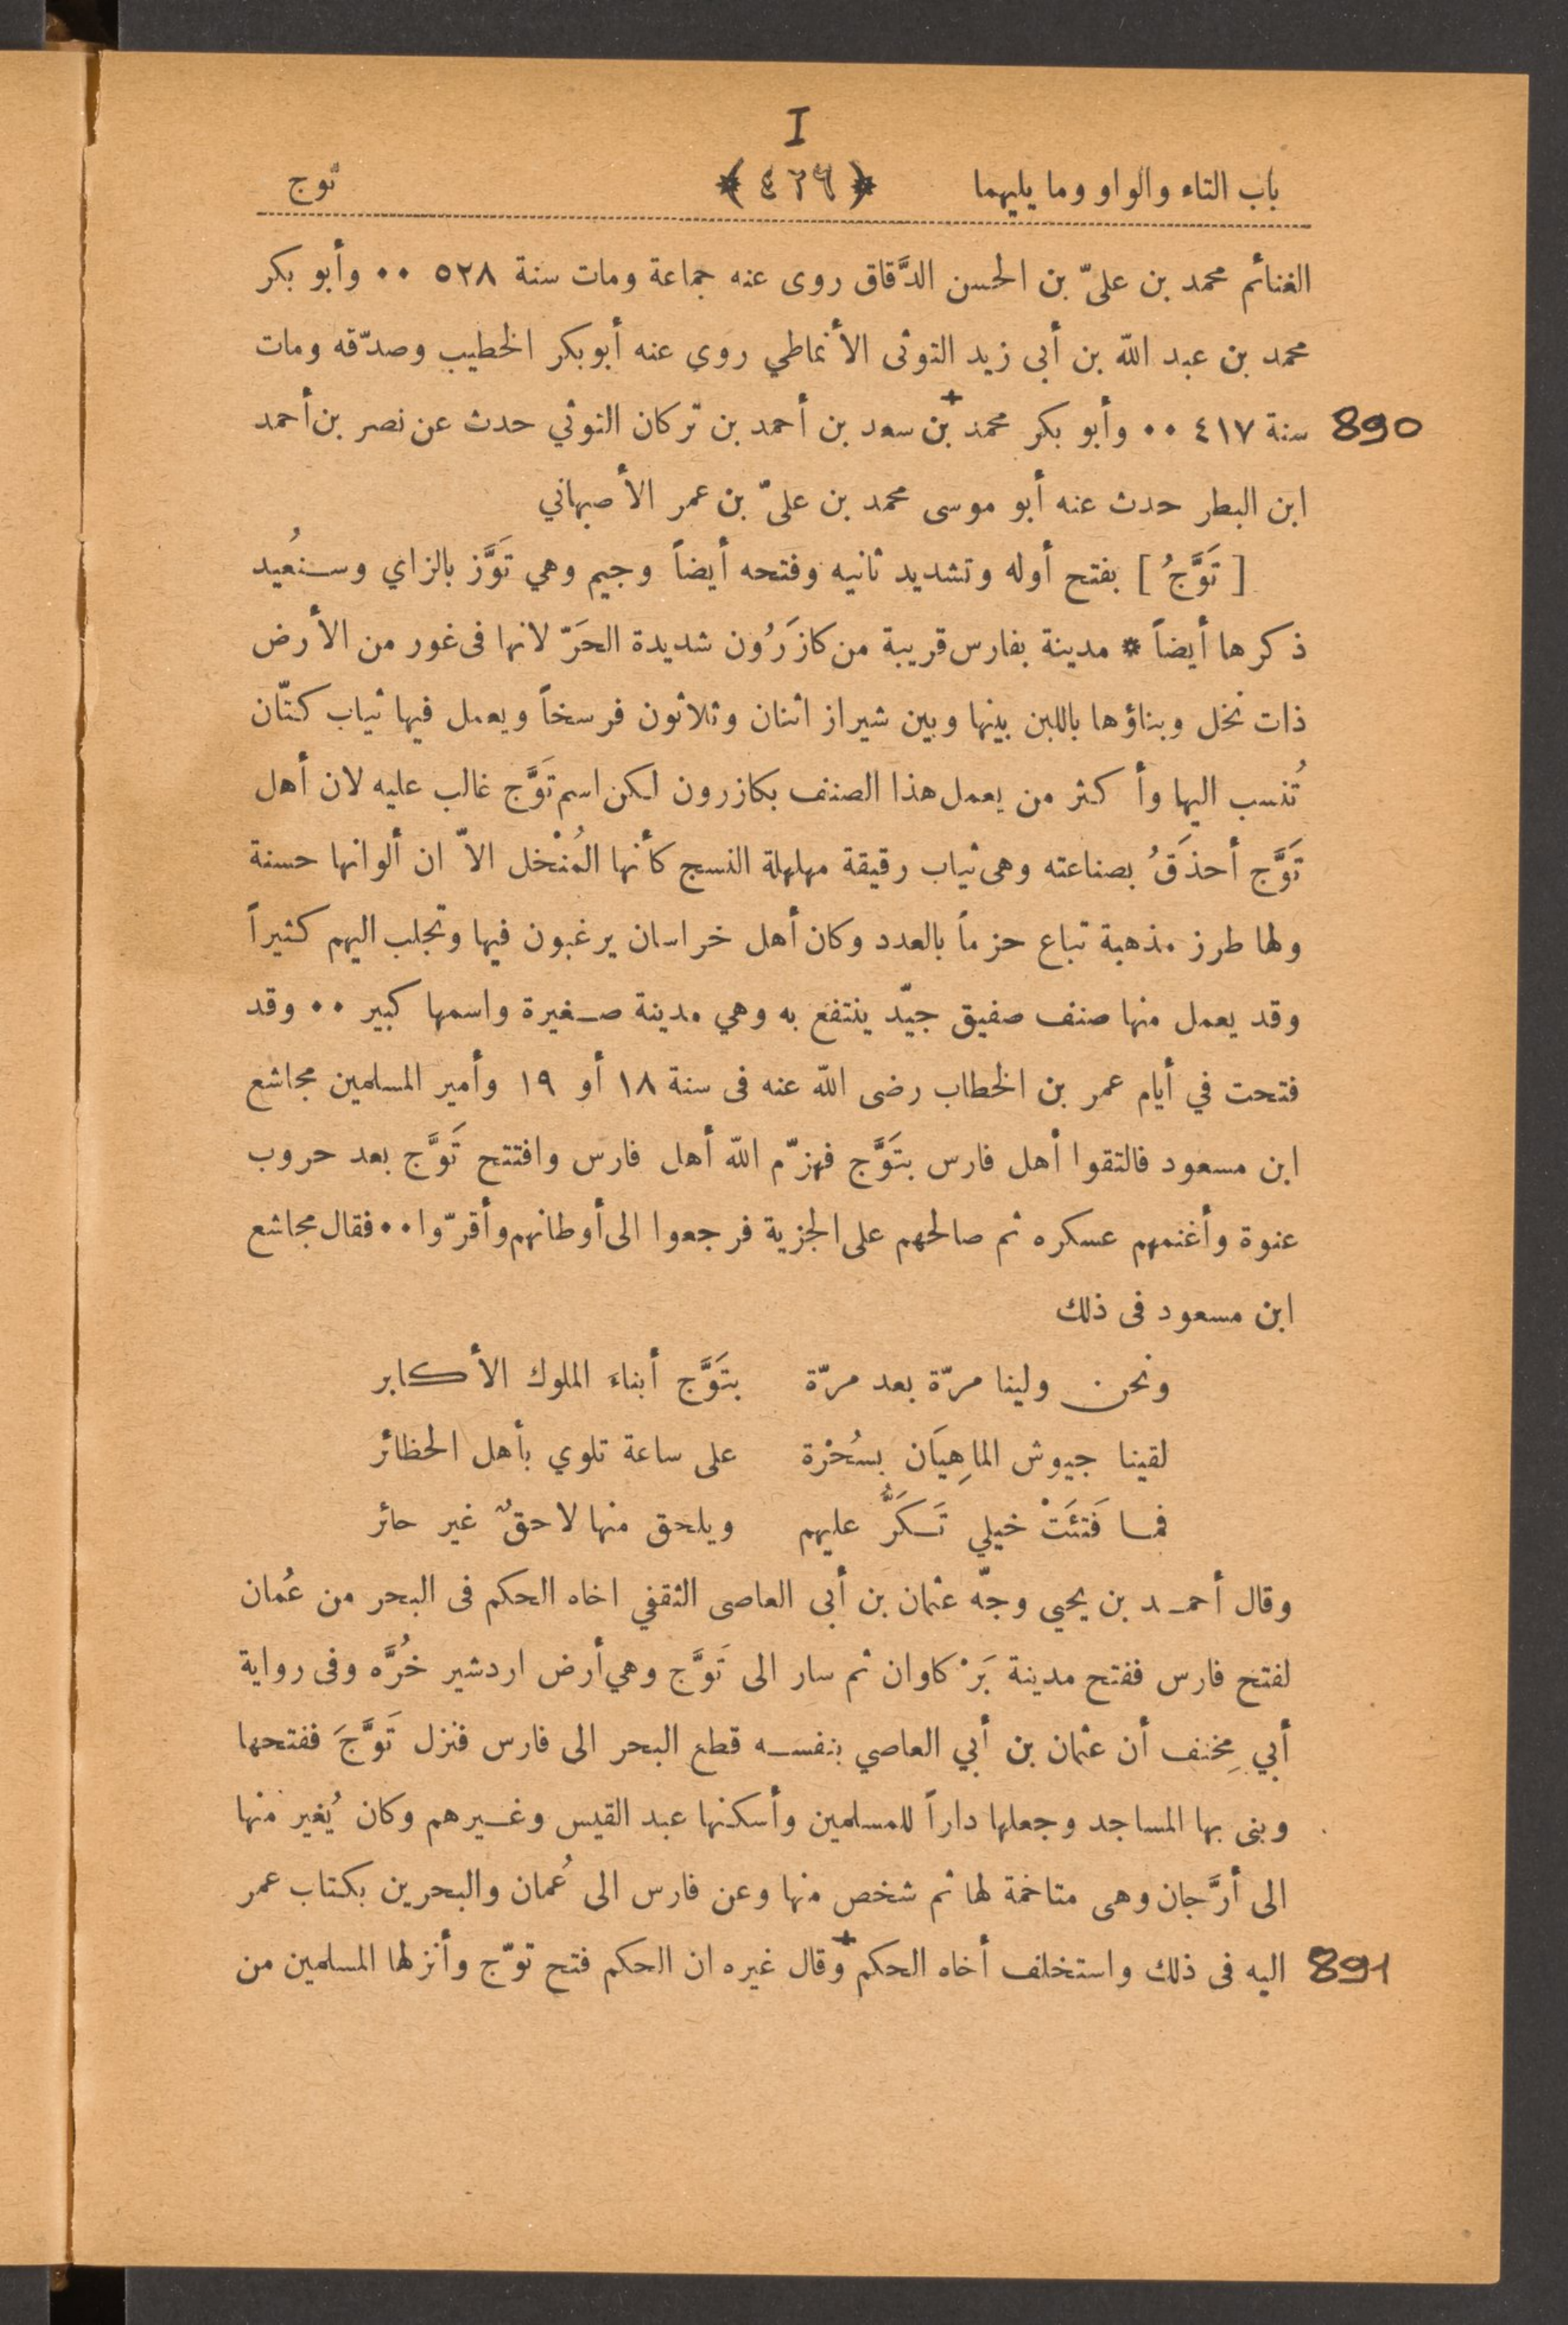 I
باب التاء والواو وما يليهما ﴿ ٤٢٦ ﴾ توج
الغنائم محمد بن علىّ بن الحسن الدَّقاق روى عنه جماعة ومات سنة ٥٢٨ ٠٠ وأبو بكر
محمد بن عبد الله بن أبى زيد التوثى الأنماطي روي عنه أبو بكر الخطيب وصدّقه ومات
890 سنة ٤١٧ ٠٠ وأبو بكر محمد + بن سعد بن أحمد بن تركان التوثي حدث عن نصر بن أحمد
ابن البطر حدث عنه أبو موسى محمد بن علىّ بن عمر الأصبهاني
[ تَوَّجُ ] بفتح أوله وتشديد ثانيه وفتحه أيضاً وجيم وهي تَوَّز بالزاي وسنُعيد
ذكرها أيضاً * مدينة بفارس قريبة من كازَرُون شديدة الحَرّ لانها فى غور من الأرض
ذات نخل وبناؤها باللبن بينها وبين شيراز اثنان وثلاثون فرسخاً ويعمل فيها ثياب كتّان
تُنسب اليها وأكثر من يعمل هذا الصنف بكازرون لكن اسم تَوَّج غالب عليه لان أهل
تَوَّج أحذَقُ بصناعته وهى ثياب رقيقة مهلهلة النسج كأنها المُنْخل الاّ ان ألوانها حسنة
ولها طرز مذهبة تباع حزماً بالعدد وكان أهل خراسان يرغبون فيها وتجلب اليهم كثيراً
وقد يعمل منها صنف صفيق جيّد ينتفع به وهي مدينة صغيرة واسمها كبير ٠٠ وقد
فتحت في أيام عمر بن الخطاب رضى الله عنه فى سنة ١٨ أو ١٩ وأمير المسلمين مجاشع
ابن مسعود فالتقوا أهل فارس بتَوَّج فهزّم الله أهل فارس وافتتح تَوَّج بعد حروب
عنوة وأغنمهم عسكره ثم صالحهم على الجزية فرجعوا الى أوطانهم وأقرّوا ٠٠ فقال مجاشع
ابن مسعود فى ذلك
ونحن ولينا مرّة بعد مرّة بتَوَّج أبناءَ الملوك الأكابر
لقينا جيوش الماهِيَان بسُحْرَة على ساعة تلوي بأهل الحظائر
فما فَتئَتْ خيلي تَكَرُّ عليهم ويلحق منها لاحقٌ غير حائر
وقال أحمد بن يحيى وجّه عثمان بن أبى العاصى الثقفي اخاه الحكم فى البحر من عُمان
لفتح فارس ففتح مدينة بَرْ كاوان ثم سار الى تَوَّج وهي أرض اردشير خُرَّه وفى رواية
أبي مِخنف أن عثمان بن أبي العاصي بنفسه قطع البحر الى فارس فنزل تَوَّجَ ففتحها
وبنى بها المساجد وجعلها داراً للمسلمين وأسكنها عبد القيس وغيرهم وكان يُغير منها
الى أرَّجان وهى متاخمة لها ثم شخص منها وعن فارس الى عُمان والبحرين بكتاب عمر
891 اليه فى ذلك واستخلف أخاه الحكم + وقال غيره ان الحكم فتح توّج وأنزلها المسلمين من